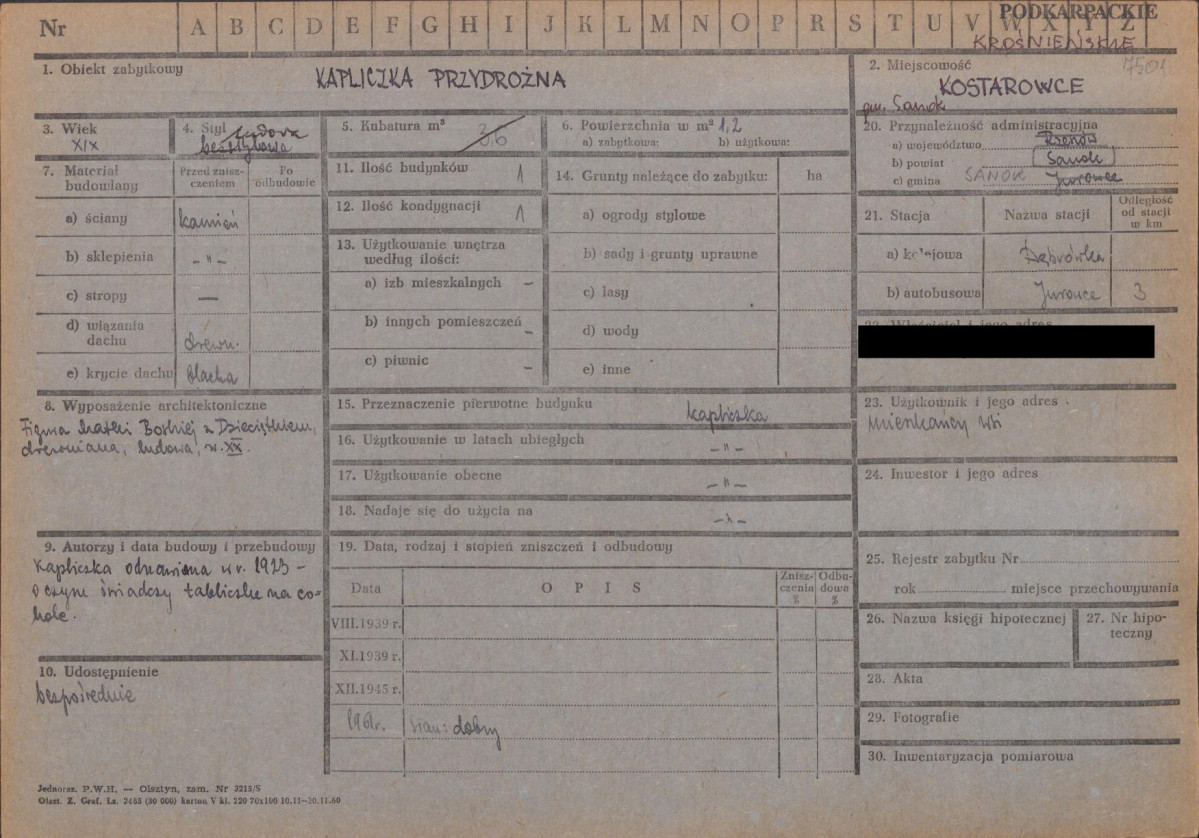 Nr A B C D E F G H I J K L M N O P R S T U V W X Y Z
PODKARPACKIE
KROŚNIEŃSKIE
1. Obiekt zabytkowy
KAPLICZKA PRZYDROŻNA
2. Miejscowość
KOSTAROWCE
gm. Sanok
3. Wiek
XIX
4. Styl
ludowa
bezstylowa
5. Kubatura m³
3,6
6. Powierzchnia w m² 1,2
a) zabytkowa: b) użytkowa:
20. Przynależność administracyjna
a) województwo Rzeszów
b) powiat Sanok
c) gmina SANOK Jurowce
7. Materiał budowlany
Przed zniszczeniem
Po odbudowie
a) ściany kamień
b) sklepienia -"-
c) stropy —
d) wiązania dachu drewn.
e) krycie dachu blacha
11. Ilość budynków 1
12. Ilość kondygnacji 1
13. Użytkowanie wnętrza
według ilości:
a) izb mieszkalnych -
b) innych pomieszczeń -
c) piwnic -
14. Grunty należące do zabytku: ha
a) ogrody stylowe
b) sady i grunty uprawne
c) lasy
d) wody
e) inne
21. Stacja Nazwa stacji Odległość od stacji w km
a) kolejowa Dąbrówka
b) autobusowa Jurowce 3
8. Wyposażenie architektoniczne
Figura Matki Boskiej z Dzieciątkiem,
drewniana, ludowa, w. XX.
15. Przeznaczenie pierwotne budynku kapliczka
16. Użytkowanie w latach ubiegłych -"-
17. Użytkowanie obecne -"-
18. Nadaje się do użycia na -"-
23. Użytkownik i jego adres
mieszkańcy wsi
24. Inwestor i jego adres
9. Autorzy i data budowy i przebudowy
Kapliczka odnawiana w r. 1923 -
o czym świadczy tabliczka na co=
kole.
19. Data, rodzaj i stopień zniszczeń i odbudowy
Data OPIS Zniszczenia % Odbudowa %
VIII.1939 r.
XI.1939 r.
XII.1945 r.
196 r. Stan: dobry
25. Rejestr zabytku Nr
rok miejsce przechowywania
26. Nazwa księgi hipotecznej
27. Nr hipoteczny
10. Udostępnienie
bezpośrednie
28. Akta
29. Fotografie
30. Inwentaryzacja pomiarowa
Jednorаz. P.W.H. — Olsztyn, zam. Nr 3215/S
Olszt. Z. Graf. Lz. 2455 (30 000) karton V kl. 220 70x100 10.11—30.11.60